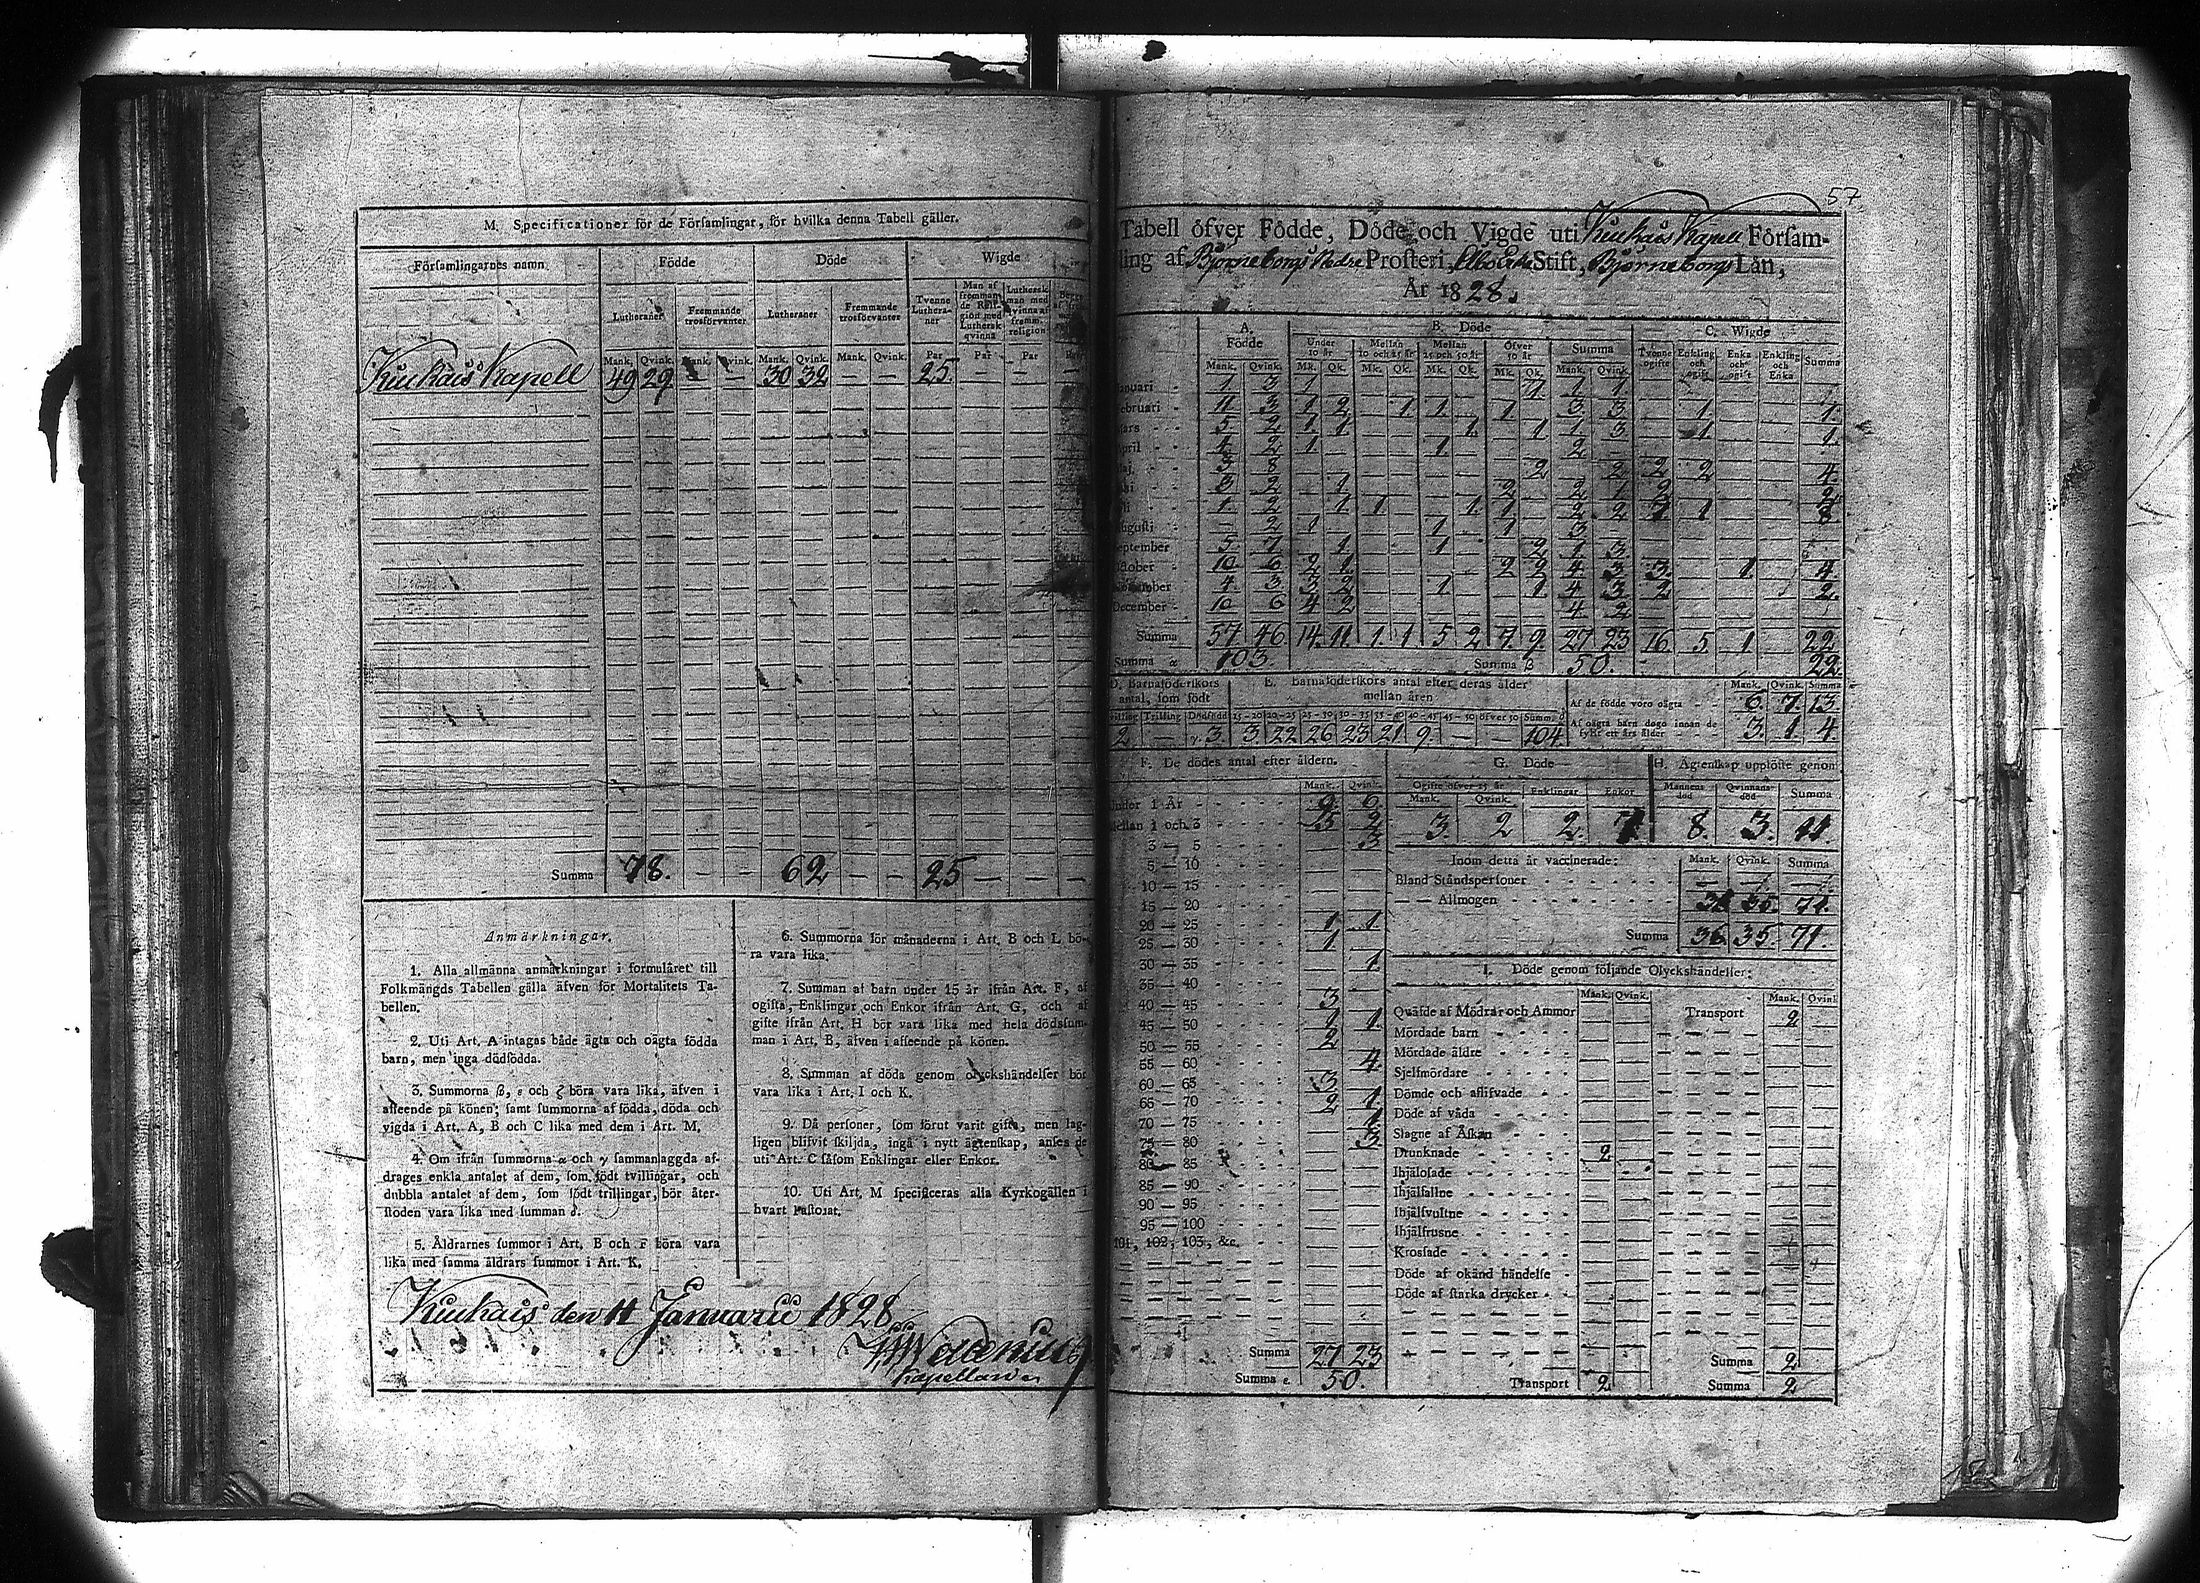 M. Specificationer för de Församlingar, för hvilka denna Tabell gäller.
Församlingarnes namn Födde Döde Wigde
Lutheraner Fremmande trosförvanter Lutheraner Fremmande trosförvanter Tvenne Lutheraner Man af fremmande Religion med Luthersk qvinna Luthersk man med qvinna af fremm. religion
Mank. Qvink. Mank. Qvink. Mank. Qvink. Mank. Qvink. Par Par Par
Kiukais Kapell 49 29 — — 30 32 — — 25. — —
Summa 78. — — 62 — — 25 — —
Anmärkningar.
1. Alla allmänna anmärkningar i formuläret till
Folkmängds Tabellen gälla äfven för Mortalitets Ta-
bellen.
2. Uti Art. A intagas både ägta och oägta födda
barn, men inga dödfödda.
3. Summorna β, ε och ζ böra vara lika, äfven i
afseende på könen; samt summorna af födda, döda och
vigda i Art. A, B och C lika med dem i Art. M.
4. Om ifrån summorna α och γ sammanlaggda af-
drages enkla antalet af dem, som födt tvillingar, och
dubbla antalet af dem, som födt trillingar, bör åter-
stoden vara lika med summan δ.
5. Åldrarnes summor i Art. B och F böra vara
lika med samma åldrars summor i Art. K.
6. Summorna för månaderna i Art. B och L bö-
ra vara lika.
7. Summan af barn under 15 år ifrån Art. F, af
ogifta, Enklingar och Enkor ifrån Art. G, och af
gifte ifrån Art. H bör vara lika med hela dödssum-
man i Art. B, äfven i afseende på könen.
8. Summan af döda genom olyckshändelser bör
vara lika i Art. I och K.
9. Då personer, som förut varit gifta, men lag-
ligen blifvit skiljda, ingå i nytt ägtenskap, anses de
uti Art. C såsom Enklingar eller Enkor.
10. Uti Art. M specificeras alla Kyrkogällen i
hvart Pastorat.
Kiukais den 11 Januarii 1828
Kapellan
57
Tabell öfver Födde, Döde och Vigde uti Kiukais Kapell Församling
af Björneborgs Nedre Prosteri, Åbo Stift, Björneborgs Län,
År 1828.
A. Födde B. Döde C. Wigde
Under 10 år Mellan 10 och 25 år Mellan 25 och 50 år Öfver 50 år Summa Tvenne ogifte Enkling och ogift Enka och ogift Enkling och Enka Summa
Mank. Qvink. Mk. Qk. Mk. Qk. Mk. Qk. Mk. Qk. Mank. Qvink.
Januari 1 3 1 1 1 1
Februari 11 3 1 2 1 1 1 3 3 1 1.
Mars 5 2 1 1 1 1 1 3 1 1
April 1 2 1 1 2
Maj 3 8 2 2 2 2 4.
September 5 7 1 1 2 1 3
October 10 6 2 1 2 2 4 3 3 1 4
November 4 3 3 2 1 1 4 3 2 2
December 10 6 4 2 4 2
Summa 57 46 14 11 1 1 5 2 7. 9. 27 23 16 5 1 22
Summa α 103. Summa β 50. 22.
D. Barnaföderskors antal, som födt
Tvilling Trilling Dödfödd
2 — 3
E. Barnaföderskors antal efter deras ålder mellan åren
15—20 20—25 25—30 30—35 35—40 40—45 45—50 öfver 50 Summa δ
3 22 26 23 21 9. — — 104.
Mank. Qvink. Summa
Af de födde voro oägta 6. 7. 13
Af oägta barn dogo innan de fyllt ett års ålder 3. 1. 4
F. De dödes antal efter åldern.
Mank. Qvink.
Under 1 År 9 6
Mellan 1 och 3 5 2
3 — 5 3
5 — 10
10 — 15
15 — 20
20 — 25 1 1
25 — 30 1
30 — 35 1
35 — 40
40 — 45 3
45 — 50 1 1
50 — 55 2
55 — 60 4
60 — 65 3
65 — 70 2 1
70 — 75 1
75 — 80 3
80 — 85
85 — 90
90 — 95
95 — 100
101, 102, 103, &c.
Summa 27 23
Summa ε. 50.
G. Döde
Ogifte öfver 15 år Enklingar Enkor
Mank. Qvink.
3. 2 2.
H. Ägtenskap upplöste genom
Mannens död Qvinnans död Summa
8. 3. 11.
Inom detta år vaccinerade: Mank. Qvink. Summa
Bland Ståndspersoner — — —
— — Allmogen 36 35. 71.
Summa 36. 35. 71.
I. Döde genom följande Olyckshändelser:
Mank. Qvink. Mank. Qvink
Qväfde af Mödrar och Ammor Transport 2
Mördade barn
Mördade äldre
Sjelfmördare
Dömde och aflifvade
Döde af våda
Slagne af Åskan
Drunknade 2
Ihjälosade
Ihjälfallne
Ihjälsvultne
Ihjälfrusne
Krossade
Döde af okänd händelse
Döde af starka drycker
Summa 2
Transport 2 Summa 2